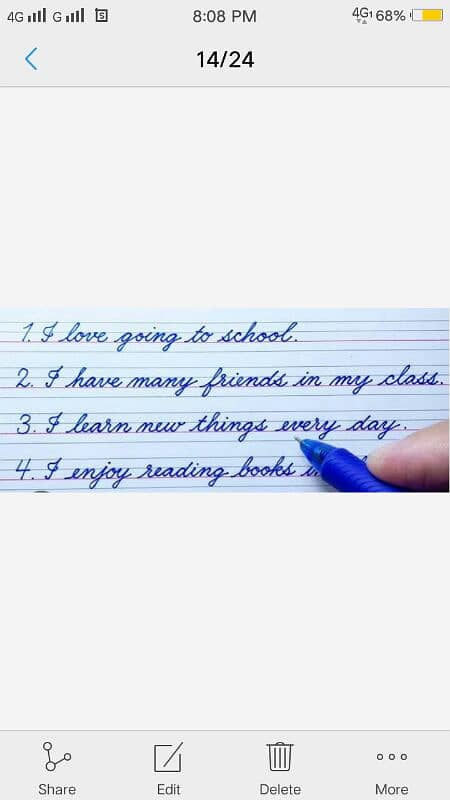 4G G 8:08 PM 4G 68%
14/24
1. I love going to school.
2. I have many friends in my class.
3. I learn new things every day.
4. I enjoy reading books
Share Edit Delete More